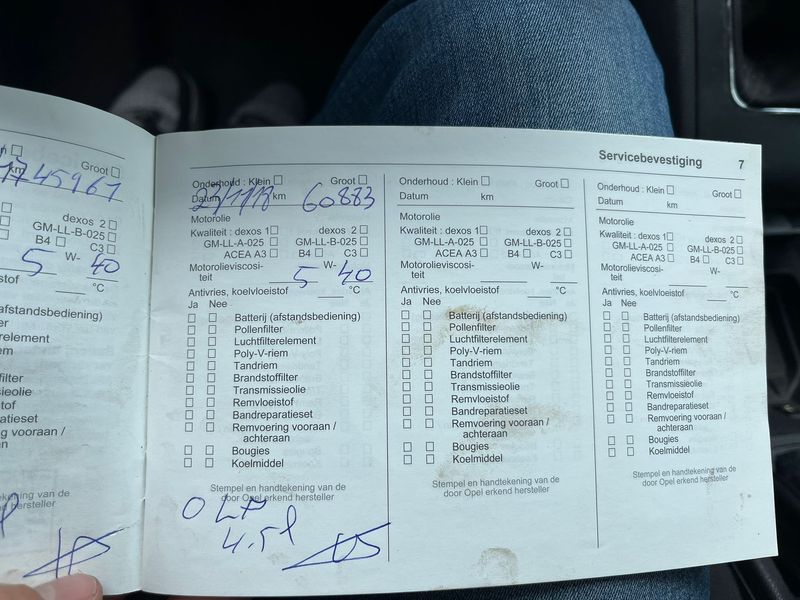 Servicebevestiging 7
Groot
km
17 45961
dexos 2
GM-LL-B-025
B4 C3
W-
5 40
°C
afstandsbediening)
erelement
iem
filter
ssieolie
stof
aratieset
g vooraan /
kening van de
d hersteller
Onderhoud : Klein Groot
Datum km
60883
Motorolie
Kwaliteit : dexos 1 dexos 2
GM-LL-A-025 GM-LL-B-025
ACEA A3 B4 C3
Motorolieviscosi- W-
teit 5 40
Antivries, koelvloeistof °C
Ja Nee
Batterij (afstandsbediening)
Pollenfilter
Luchtfilterelement
Poly-V-riem
Tandriem
Brandstoffilter
Transmissieolie
Remvloeistof
Bandreparatieset
Remvoering vooraan /
achteraan
Bougies
Koelmiddel
Stempel en handtekening van de
door Opel erkend hersteller
4.5l
Onderhoud : Klein Groot
Datum km
Motorolie
Kwaliteit : dexos 1 dexos 2
GM-LL-A-025 GM-LL-B-025
ACEA A3 B4 C3
Motorolieviscosi- W-
teit
Antivries, koelvloeistof °C
Ja Nee
Batterij (afstandsbediening)
Pollenfilter
Luchtfilterelement
Poly-V-riem
Tandriem
Brandstoffilter
Transmissieolie
Remvloeistof
Bandreparatieset
Remvoering vooraan /
achteraan
Bougies
Koelmiddel
Stempel en handtekening van de
door Opel erkend hersteller
Onderhoud : Klein Groot
Datum km
Motorolie
Kwaliteit : dexos 1 dexos 2
GM-LL-A-025 GM-LL-B-025
ACEA A3 B4 C3
Motorolieviscosi- W-
teit
Antivries, koelvloeistof °C
Ja Nee
Batterij (afstandsbediening)
Pollenfilter
Luchtfilterelement
Poly-V-riem
Tandriem
Brandstoffilter
Transmissieolie
Remvloeistof
Bandreparatieset
Remvoering vooraan /
achteraan
Bougies
Koelmiddel
Stempel en handtekening van de
door Opel erkend hersteller